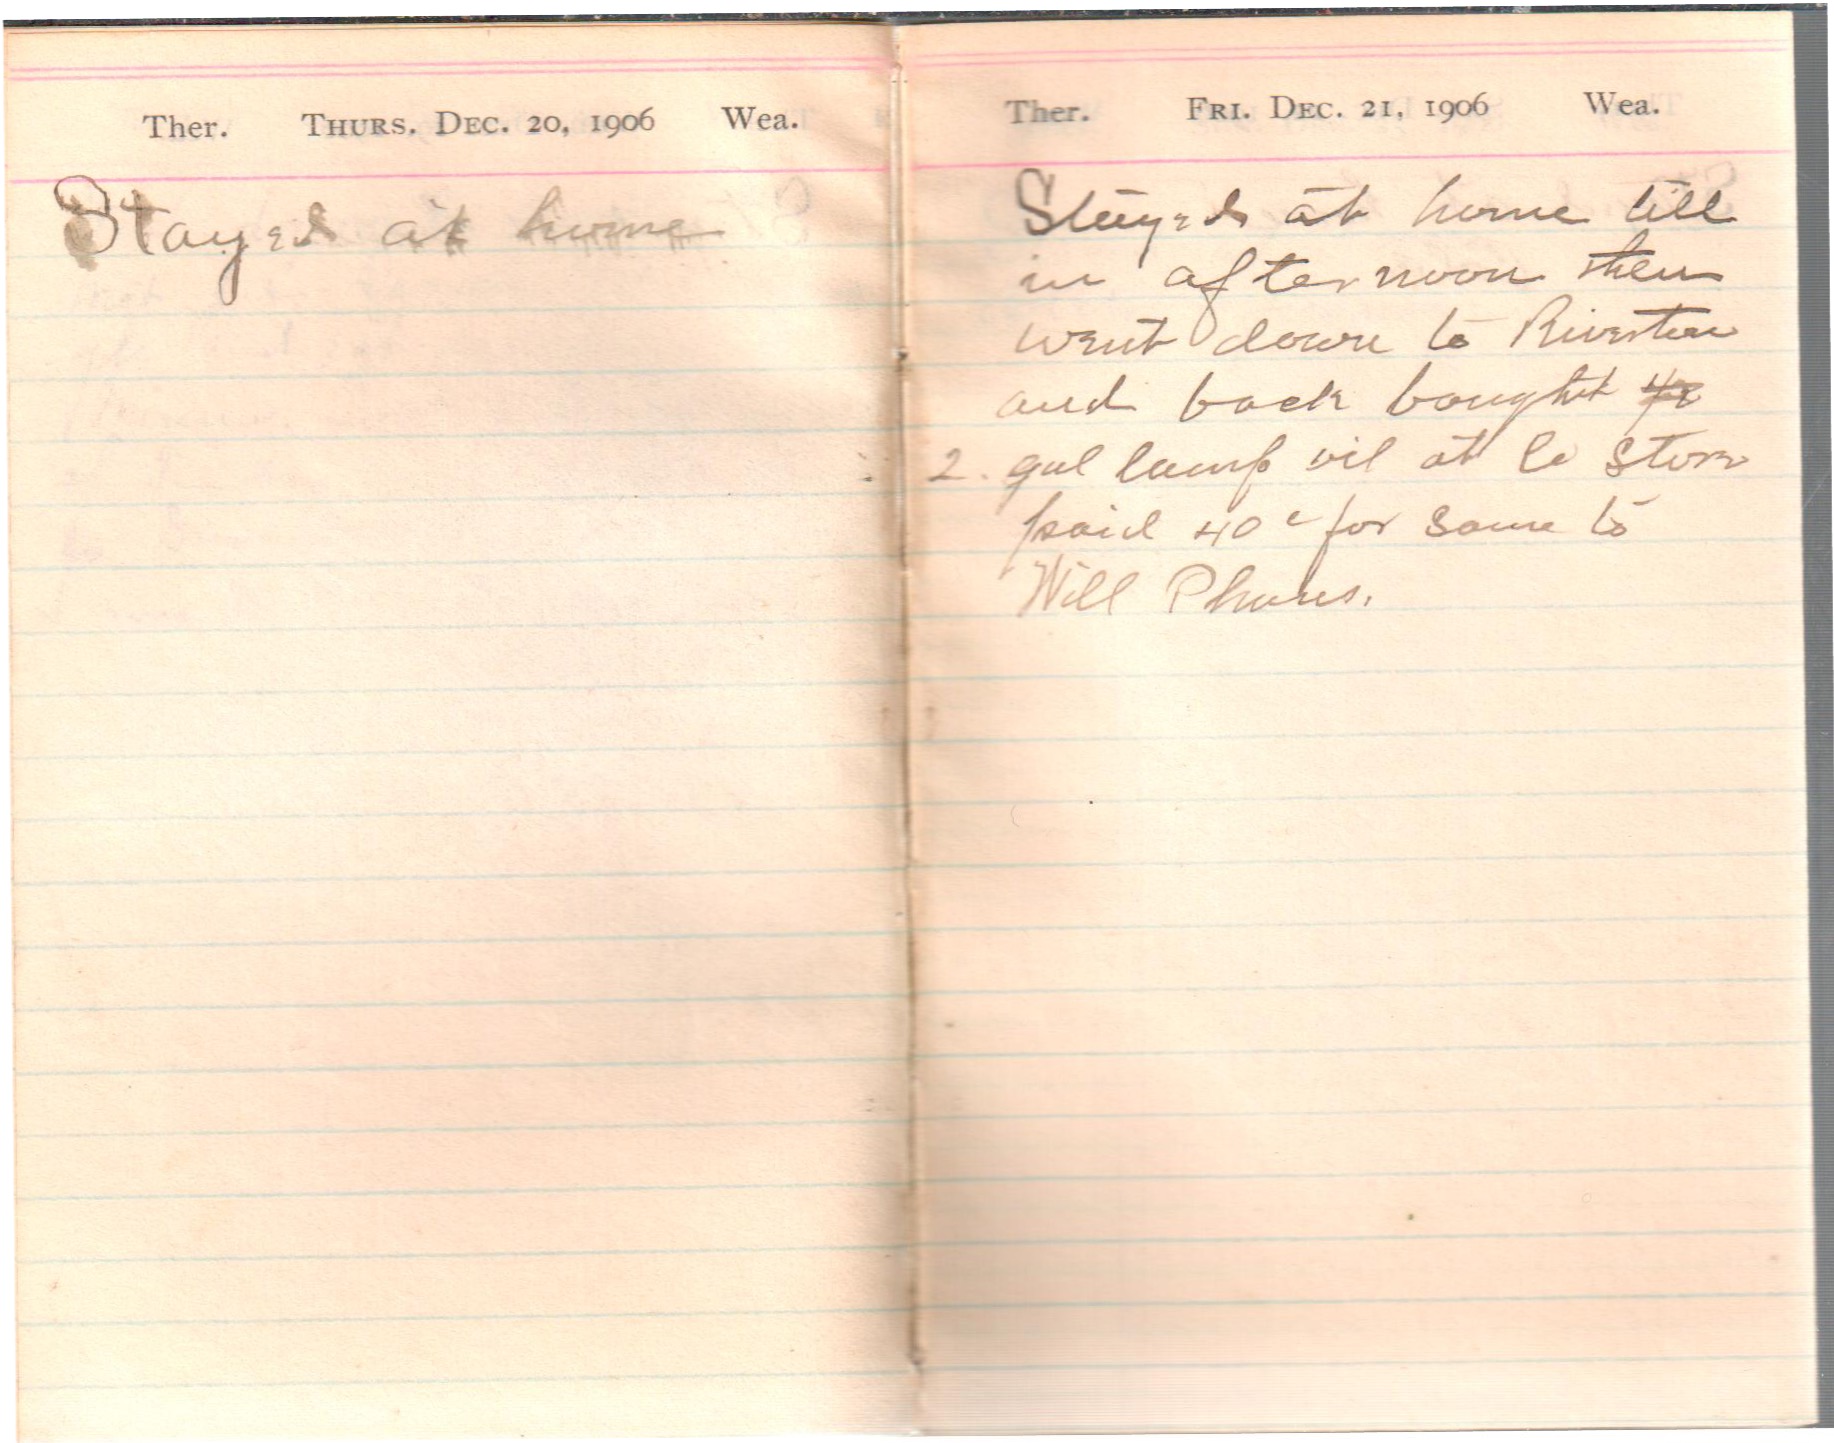 Ther. THURS. DEC. 20, 1906 Wea.
Stayed at home
Ther. FRI. DEC. 21, 1906 Wea.
Stayed at home till
in afternoon then
went down to Riverton
and back bought
2. gal lamp oil at Co Store
paid 40c for same to
Will Phares.